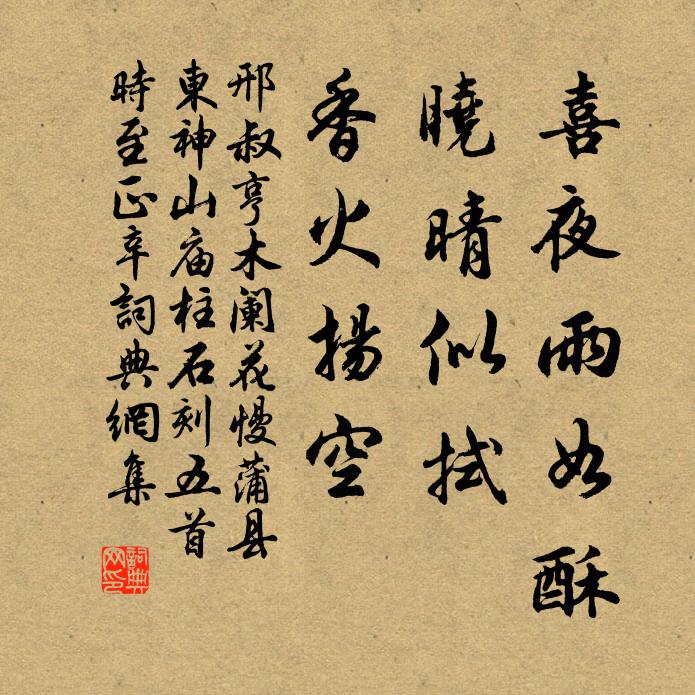 喜夜雨如酥
曉晴似拭
香火揚空
邢叔亨木闌花慢蒲县
東神山庙柱石刻五首
時至正辛詞典網集
詞典
网印